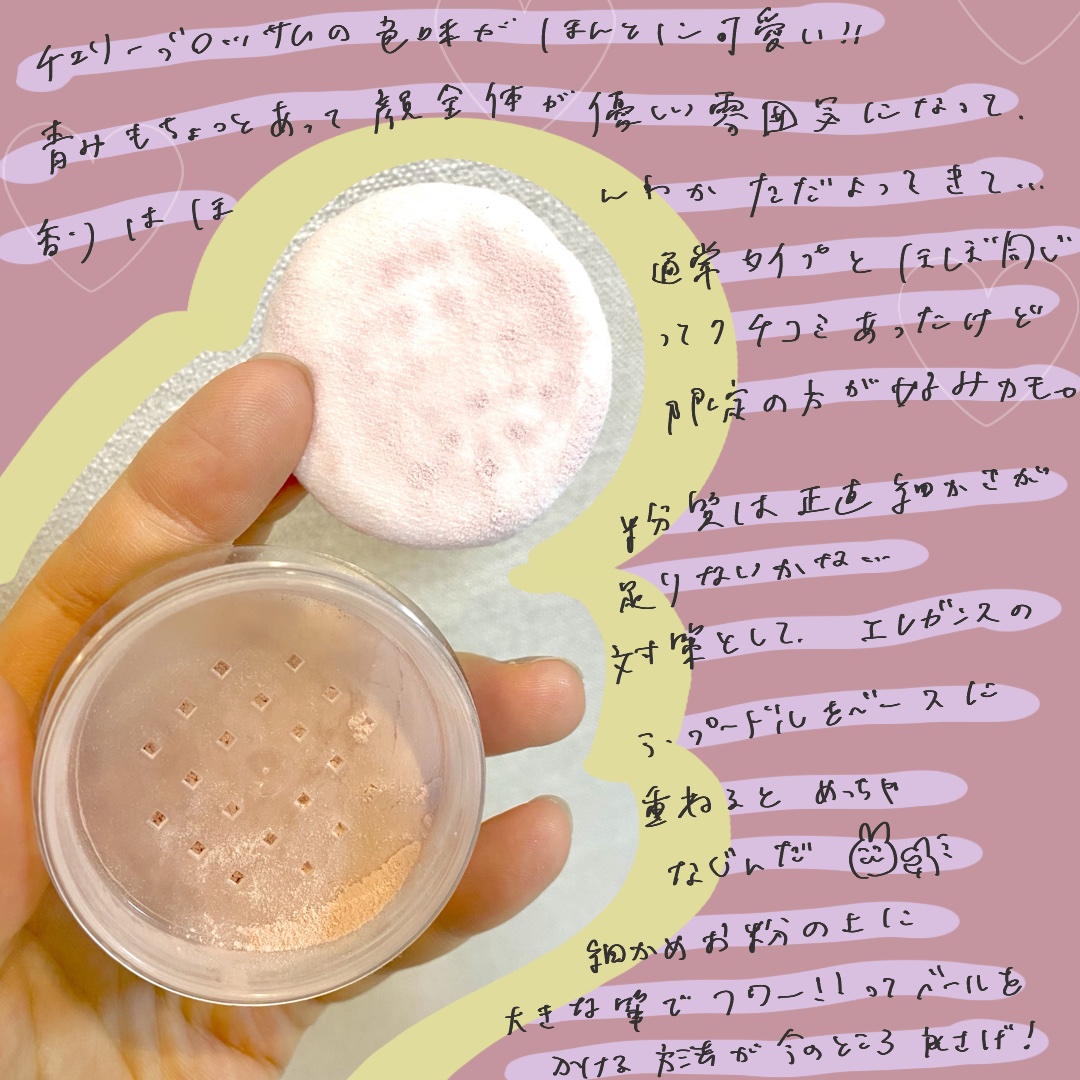 チェリーブロッサムの色味がほんとに可愛い!!
青みもちょっとあって顔全体が優しい雰囲気になって.
香りはほ
んわかただよってきて...
通常タイプとほぼ同じ
ってクチコミあったけど
限定の方が好みかも。
粉質は正直細かさが
足りないかな...
対策として. エレガンスの
ラ・プードルをベースに
重ねると めっちゃ
なじんだ
細かめお粉の上に
大きな筆でフワー!!ってベールを
かける方法が今のところ良さげ!